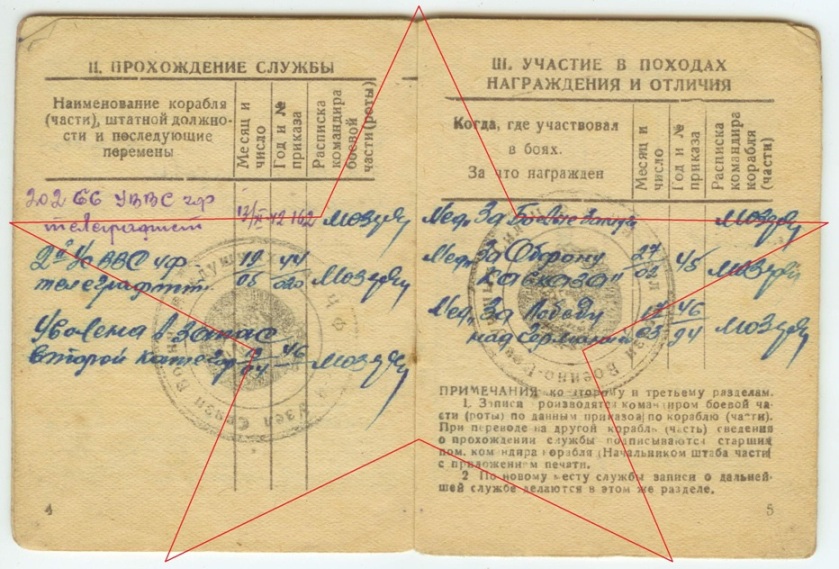 II. ПРОХОЖДЕНИЕ СЛУЖБЫ
Наименование корабля
(части), штатной должно-
сти и последующие
перемены
Месяц и
число
Год и №
приказа
Расписка
командира
боевой
части (роты)
202 ББ УВВС ЧФ
телеграфист 42 162
2й Уз ВВС ЧФ 19 44
телеграфист. 05 020
Уволена в запас
второй категор 19 46
04
4
III. УЧАСТИЕ В ПОХОДАХ
НАГРАЖДЕНИЯ И ОТЛИЧИЯ
Когда, где участвовал
в боях.
За что награжден
Месяц и
число
Год и №
приказа
Расписка
командира
корабля
(части)
Мед. За Боевые
Мед. "За Оборону 27
Кавказа" 02 45
Мед. За Победу 17 46
над Германией 03 94
ПРИМЕЧАНИЯ ко второму и третьему разделам.
1. Записи производятся командиром боевой ча-
сти (роты) по данным приказов по кораблю (части).
При переводе на другой корабль (часть) сведения
о прохождении службы подписываются старшим
пом. командира корабля (Начальником штаба части)
с приложением печати.
2 По новому месту службы записи о дальней-
шей службе делаются в этом же разделе.
5